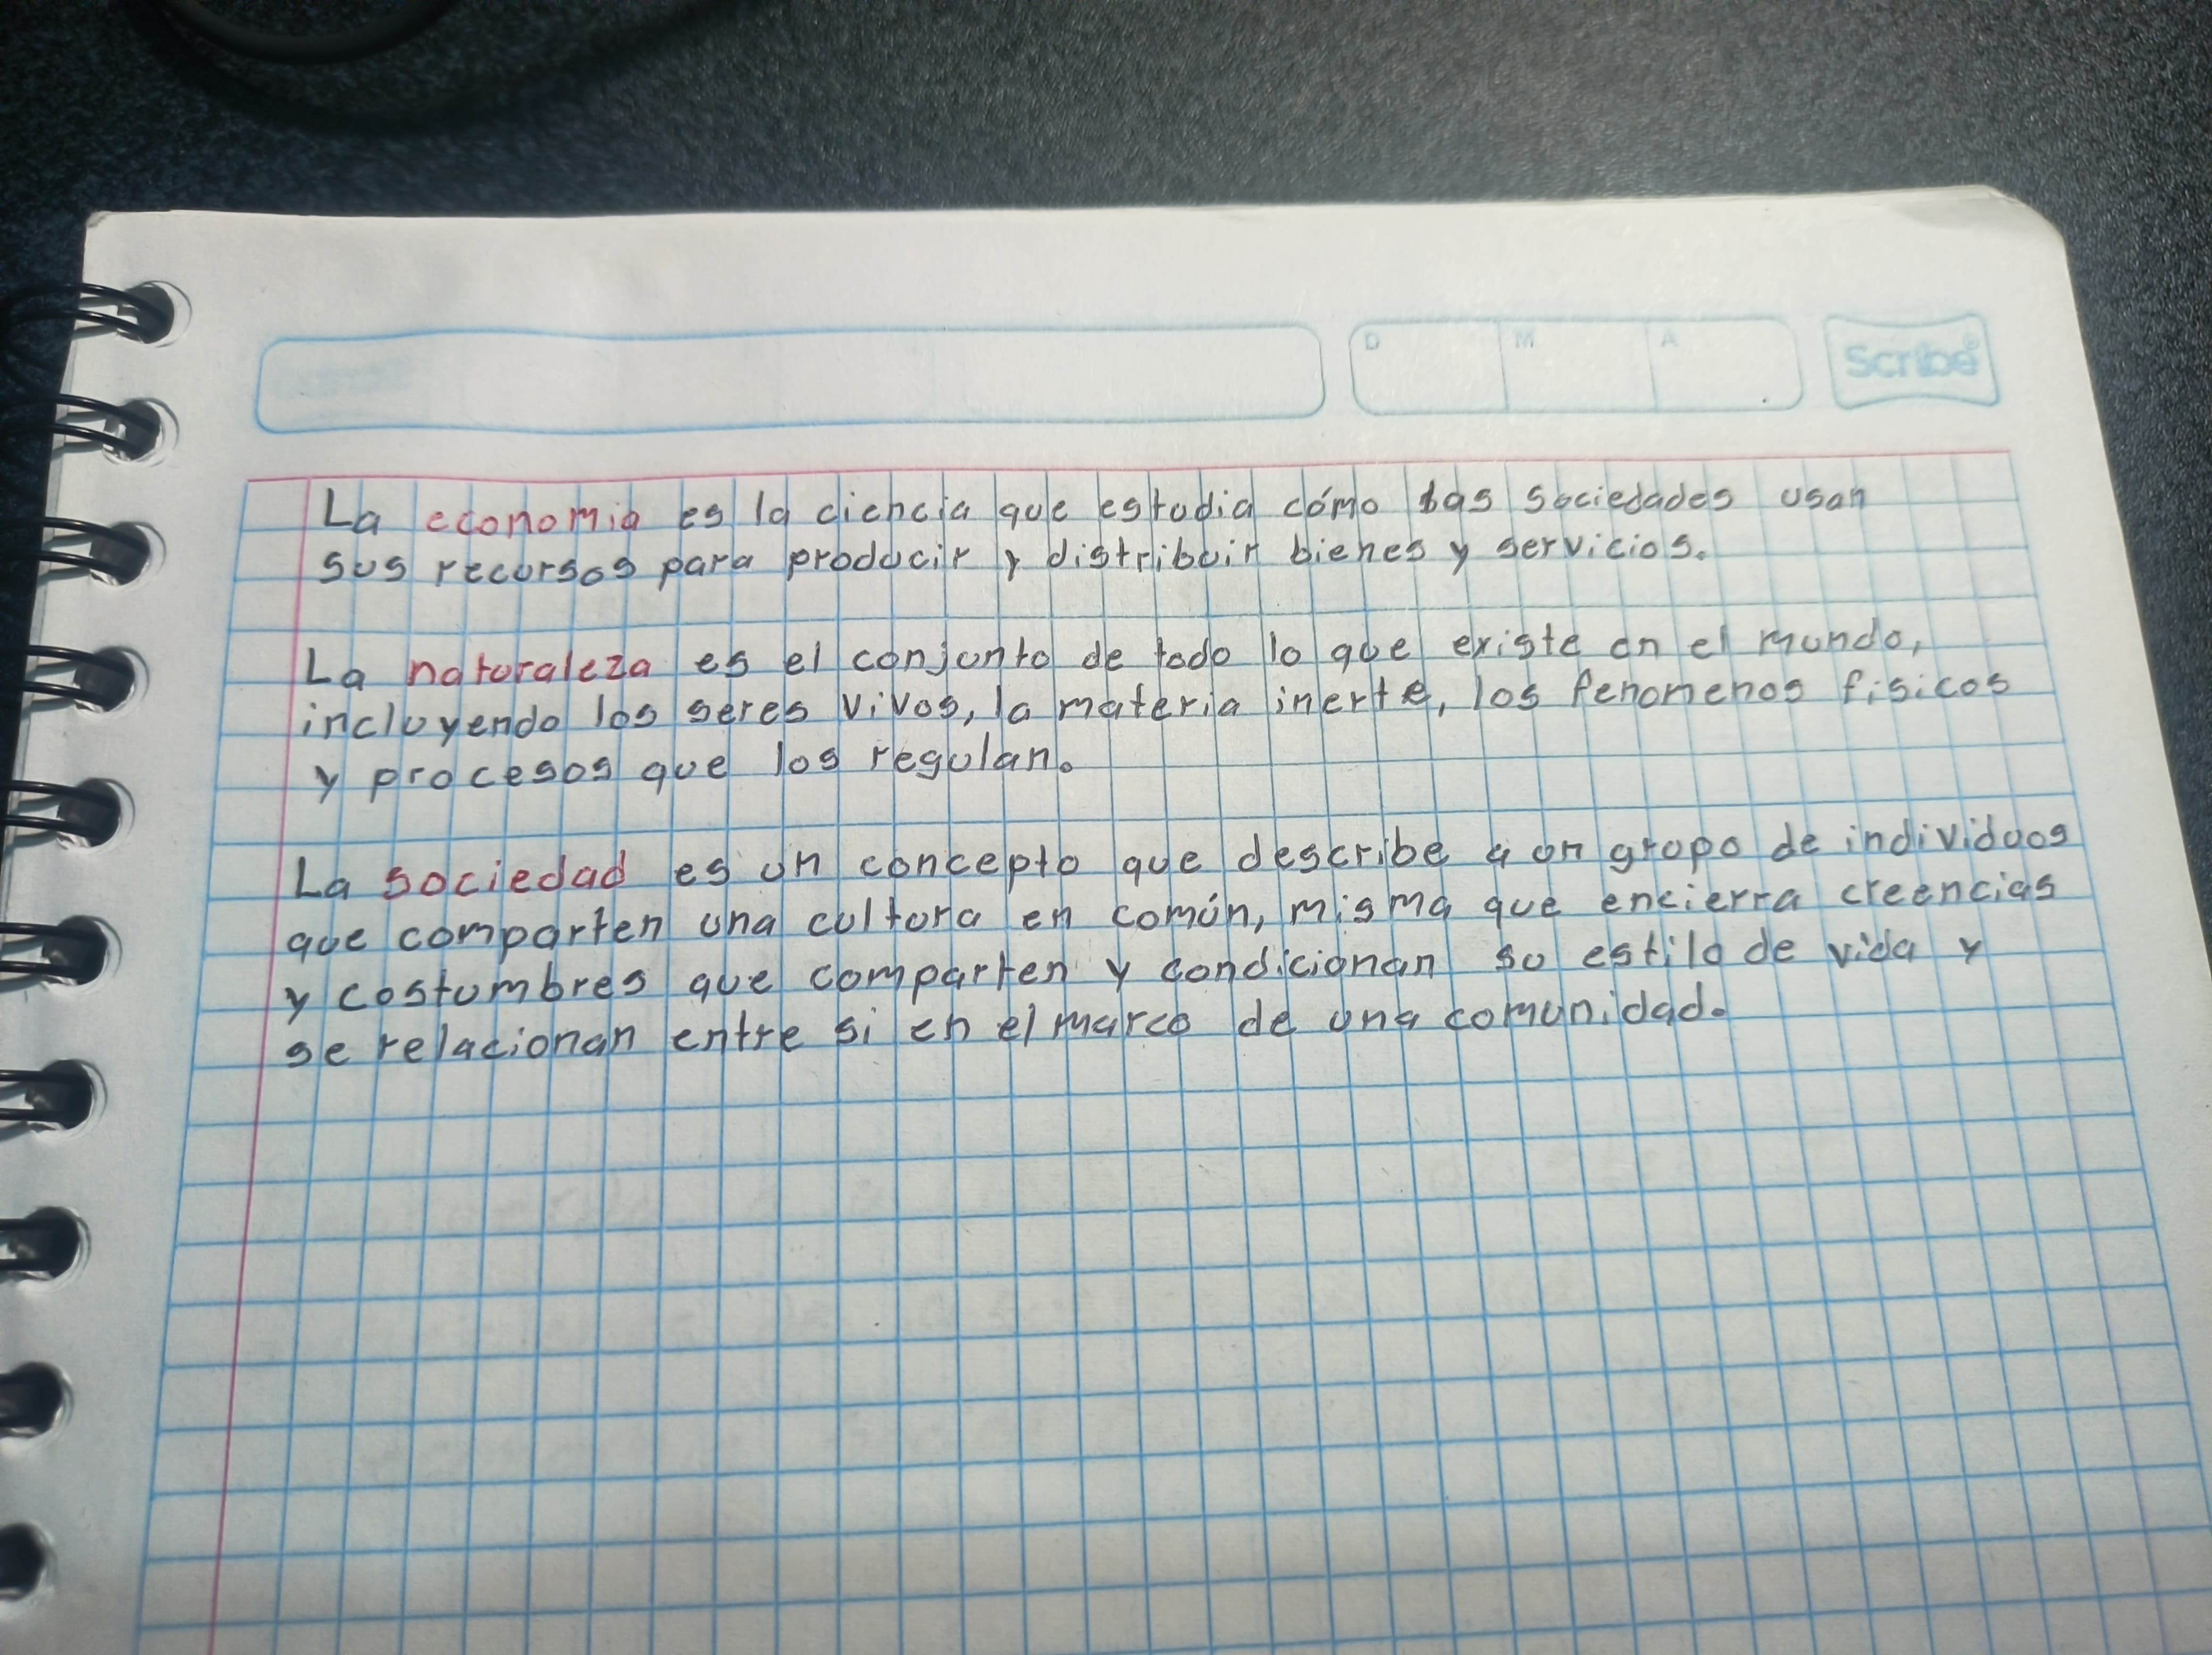 D M A Scribe®
La economia es la ciencia que estudia cómo las sociedades usan
sus recursos para producir y distribuir bienes y servicios.
La naturaleza es el conjunto de todo lo que existe en el mundo,
incluyendo los seres vivos, la materia inerte, los fenomenos fisicos
y procesos que los regulan.
La sociedad es un concepto que describe a un grupo de individuos
que comparten una cultura en común, misma que encierra creencias
y costumbres que comparten y condicionan su estilo de vida y
se relacionan entre si en el marco de una comunidad.